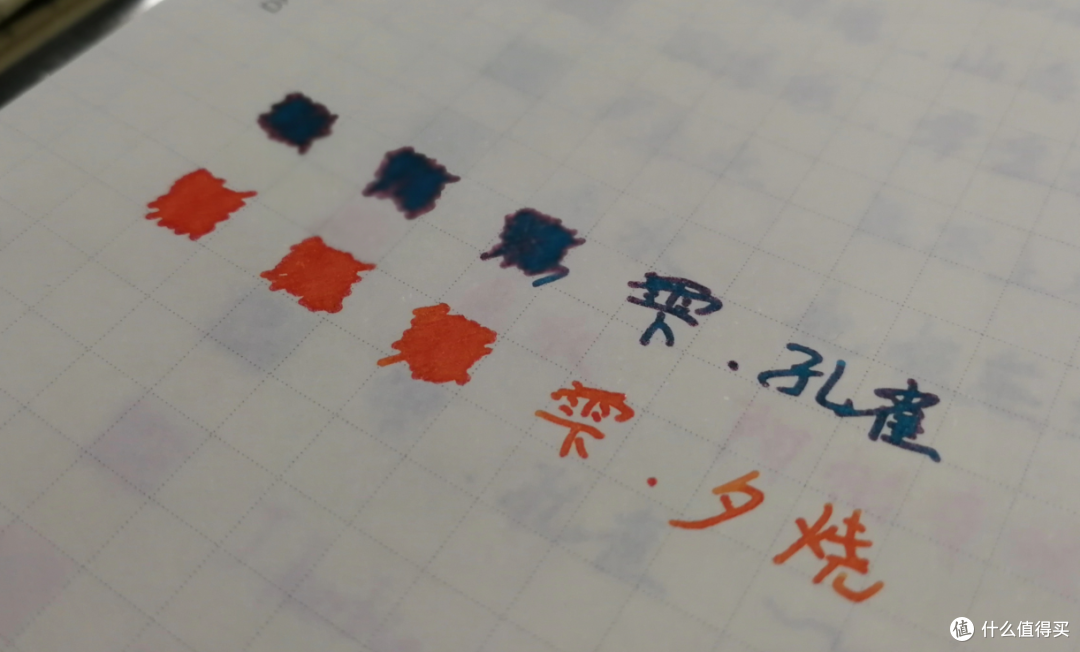 雫·孔雀
雫·夕烧
值 什么值得买